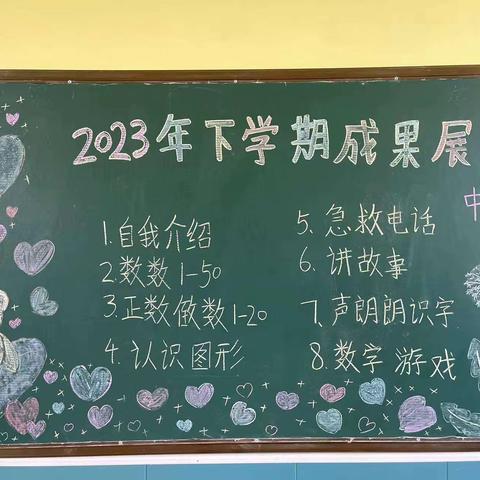 2023年下学期成果展
1.自我介绍
2.数数1-50
3.正数做数1-20
4.认识图形
5.急救电话
6.讲故事
7.声朗朗识字
8.数学游戏
中